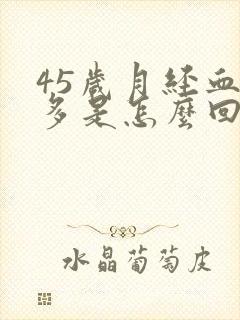 45歲月經血
多是怎麼回
水晶葡萄皮